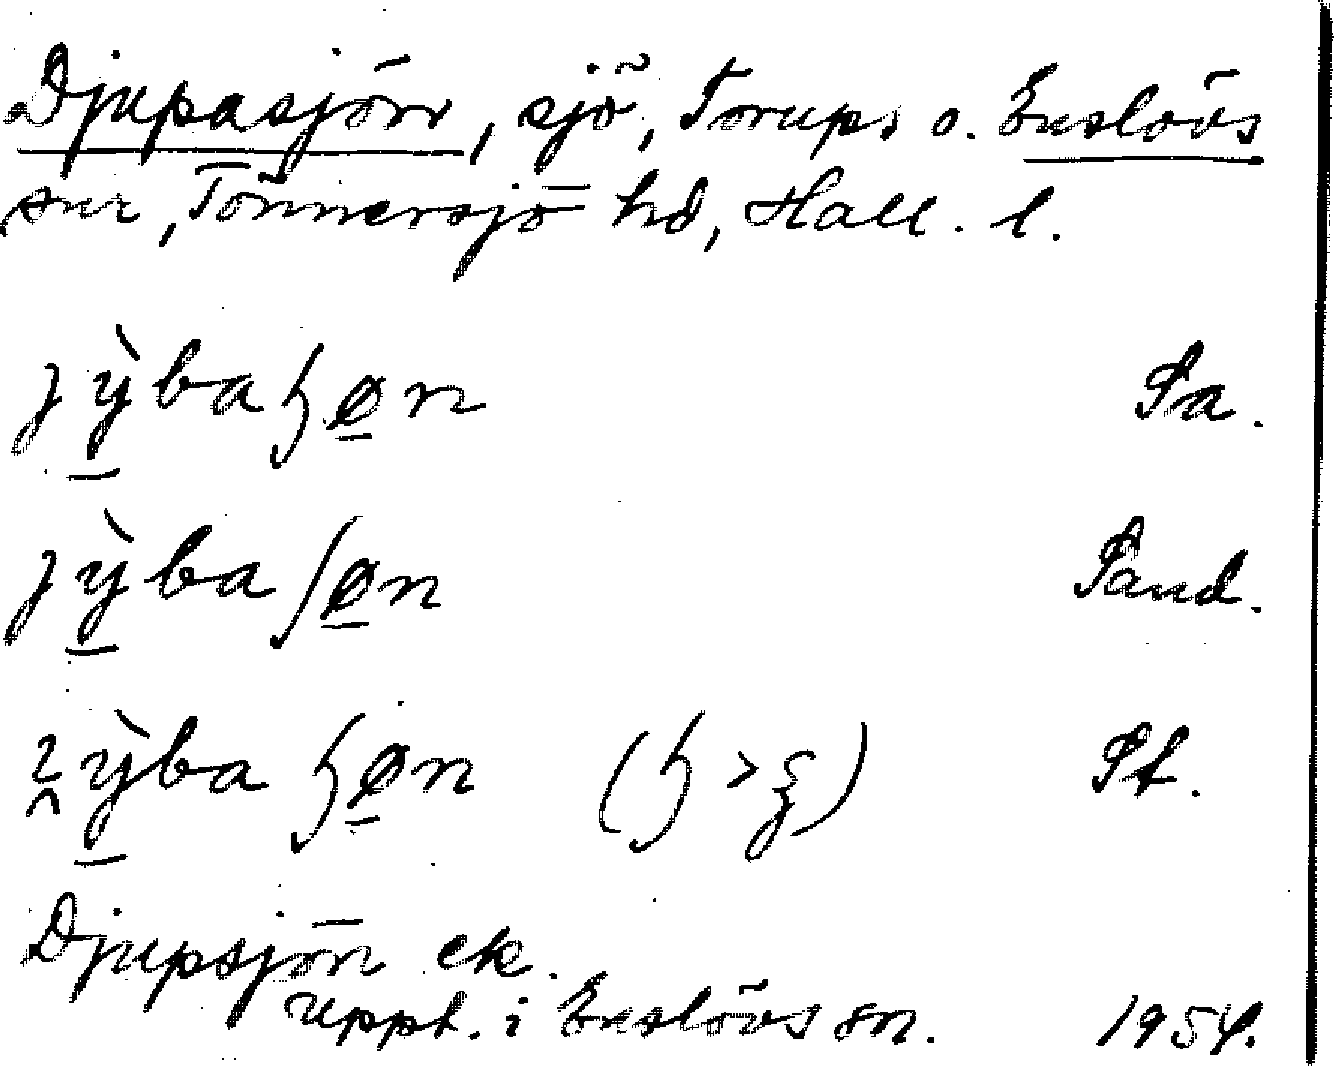 Djupasjön, sjö, Torups o. Enslövs
snr, Tönnersjö hd, Hall. l.
ȷỳ̠baɧø̠n Sa.
ȷỳ̠baʃø̠n Sand.
ỳ̠baɧø̠n (ɧ > ) St.
Djupsjön ek.
Uppt. i Enslövs sn. 1954.